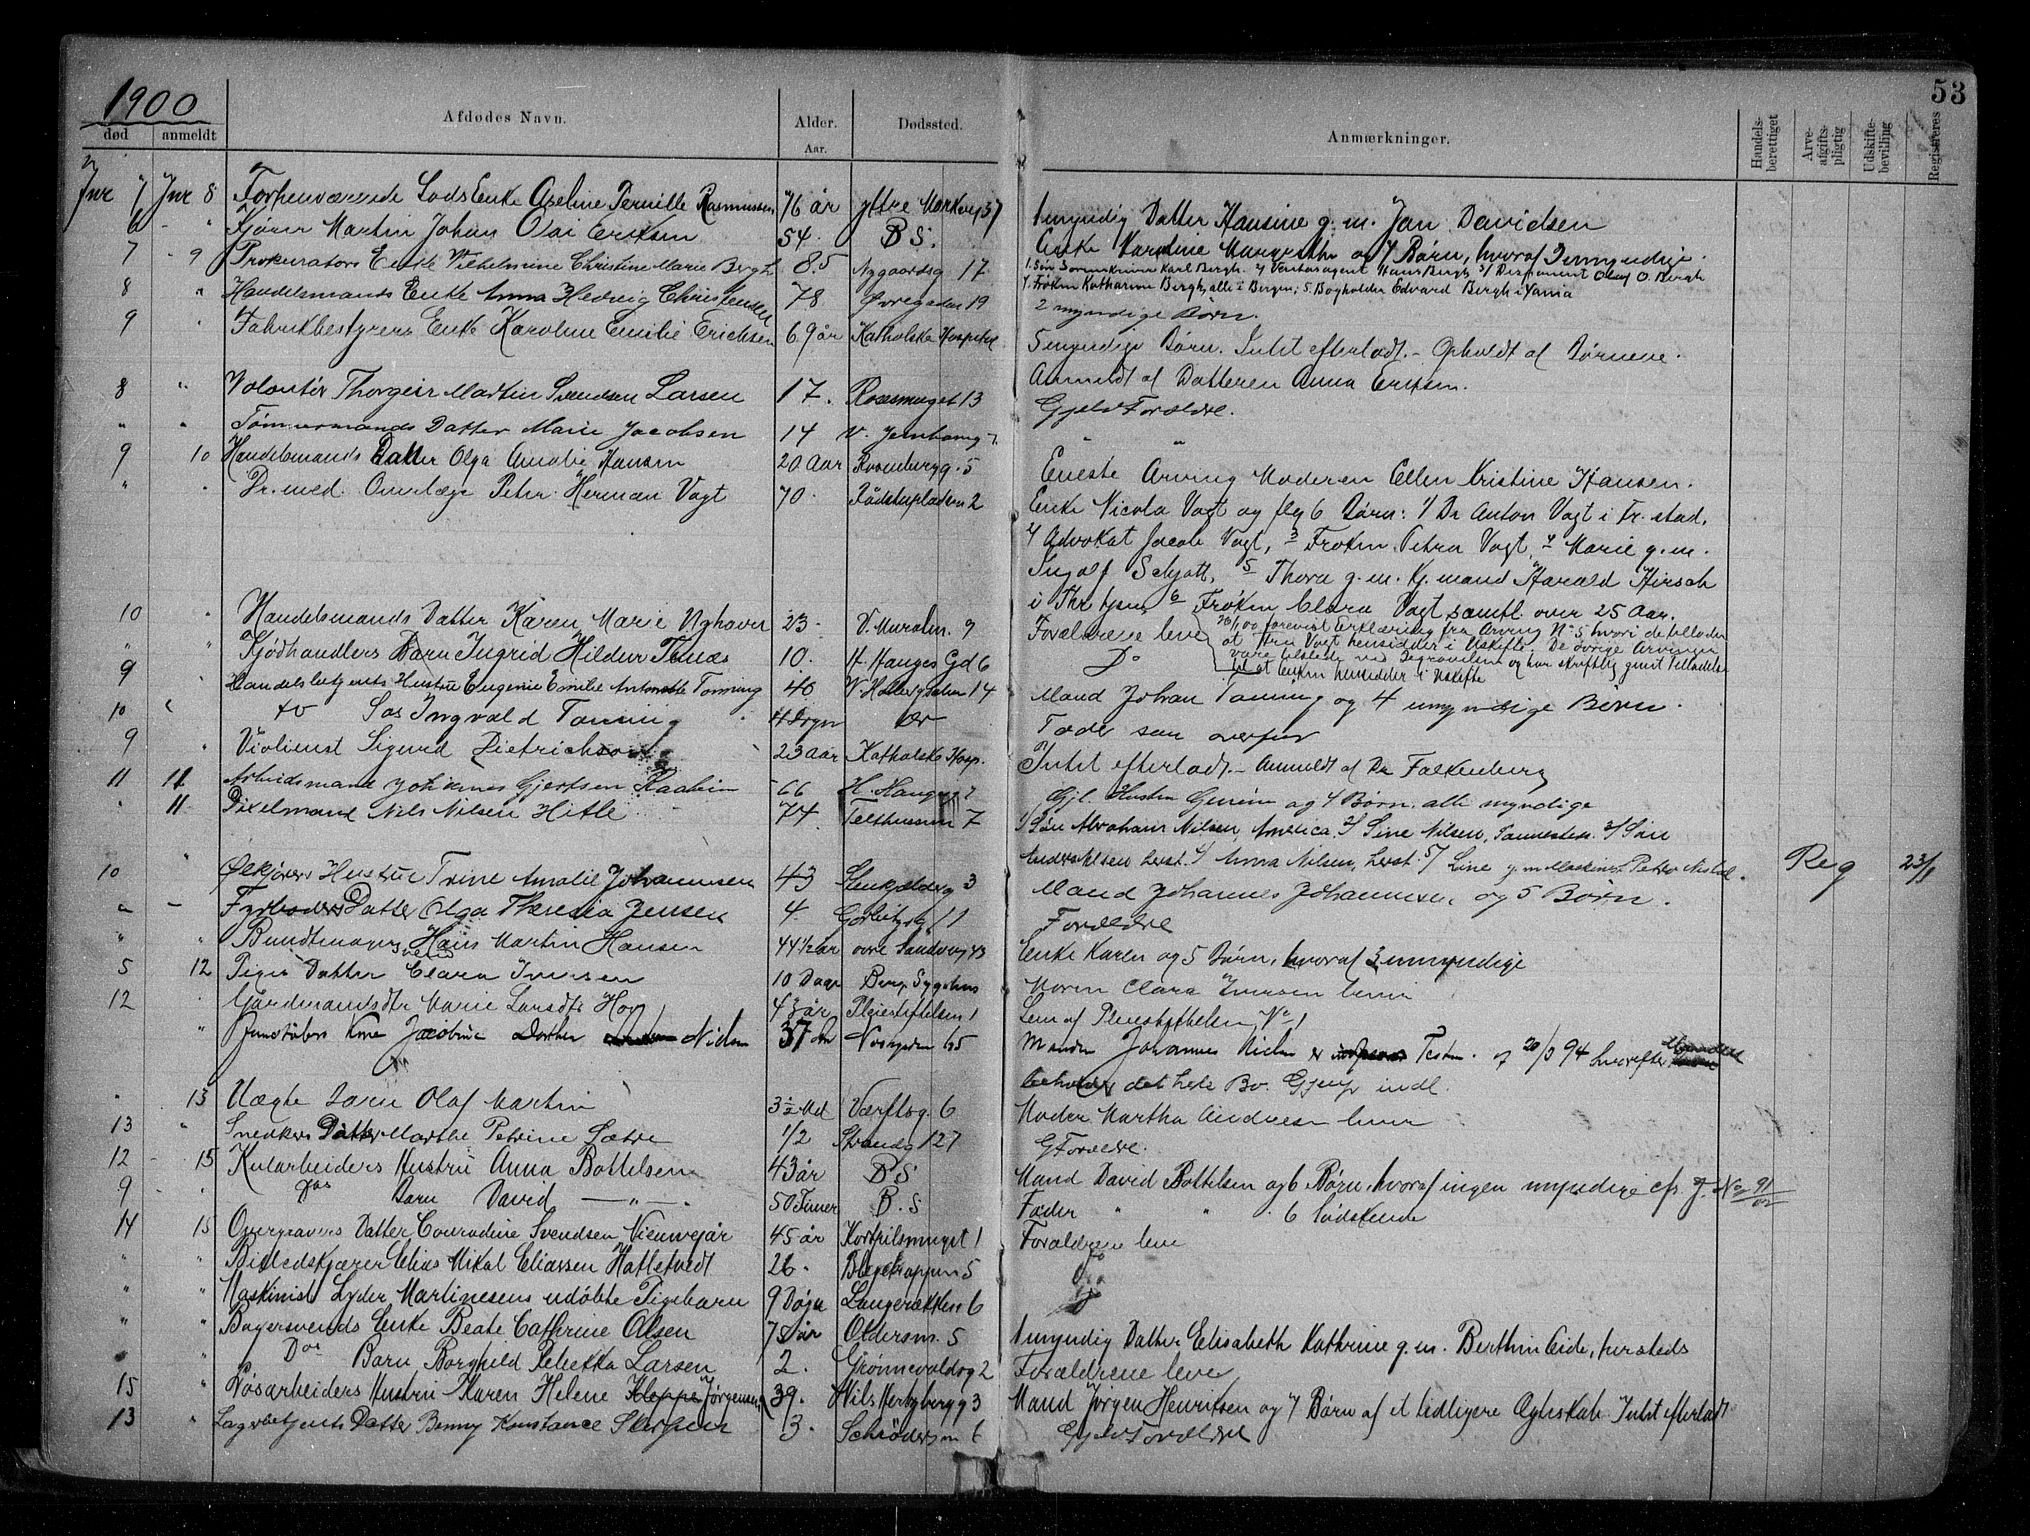 53
1900
død anmeldt Afdødes Navn. Alder. Aar. Dødssted. Anmærkninger. Handels-berettiget Arve-afgifts-pligtig Udskifte-bevilling Registreres
Jnr 7 Jnr 8 Forhenværende Lods Enke Aseline Pernille Rasmussen 76 år Ytre Markvei 37 1 myndig Datter Hansine g. m. Jan Davidsen
6 - " Kjører Martin Johan Olai Eriksen 54. B S. Enke Karoline
7 - 9 Prokurators Enke Vilhelmine Christine Marie Bergh 85 Nygaardsg 17 1. Søn Sorenskriver Karl Bergh. 2/ Veksl.agent Hans Bergh 3/ Disponent Olaf O. Bergh
4. Frøken Katharine Bergh, alle i Bergen; 5. Bogholder Edvard Bergh i
8 " Handelsmands Enke Anna Hedvig Christensen 78 Øvregaden 19 2 myndige Børn.
9 " Fabrikbestyrers Enke Karoline Emilie Erichsen 69 år Katholske Hospital 5 myndige Børn. Intet efterladt. - Opholdt af Børnene.
Anmeldt af Datteren Anna Eriksen.
8 " Volontør Thorgeir Martin Svendsen Larsen 17. Rosesmuget 13 Gjelv Forældre.
" " Tømmermands Datter Marie Jacobsen 14 " "
9 10 Handelsmands Datter Olga Amalie Hansen 20 Aar Rosenbergg. 5 Eneste Arving Moderen Ellen Kristine Hansen.
" " Dr. med. Overlæge Peter Herman Vogt 70. Rådstupladsen 2 Enke Nicola Vogt og flg 6 Børn: 1/ Dr Anton Vogt i Fr. stad,
2/ Advokat Jacob Vogt, 3 Frøken Petra Vogt, 4 Marie g. m.
Ingolf Schjøtt, 5 Thora g. m. Kj.mand Harald Hirsch
i Thr.hjem 6 Frøken Clara Vogt samtl. over 25 Aar.
10 " Handelsmands Datter Karen Marie Nyhavn 23. V. Muralm. 9 Forældrene leve
20/1 00 forevist Erklæring fra Arving No 5 hvori de tillader
at Fru Vogt hensidder i Uskifte. De øvrige Arvinger
være tilstede ved Begravelsen og har skriftlig givet Tilladelse
til at Enken hensidder i Uskifte
" " Kjødhandlers Barn Ingrid Hildur Tenæs 10. H. Hauges Gd 6 Do
9 Handelsbetjents Hustru Eugenie Emilie Antonette Tonning 40 V. Holbergsalm 14 Mand Johan Tonning og 4 umyndige Børn.
10 " Do Søn Ingvald Tonning 4 Døgn Fader som ovenfor
9 " Violinist Sigurd Dietrichson 23 Aar Katholske Hosp. Intet efterladt. - Anmeldt af Dr Falkenberg
11 11 Arbeidsmand Johannes Gjertsen 66 H. Haugeg 2 Gjl. Hustru og 4 Børn, alle myndige
" 11 Pixelmand Nils Nilsen Hitle 74 Telthussm 7 1/ Søn Abraham Nilsen, America, 2/ Sine Nilsen, 3/ Søn
Anders Nilsen, herst. 4/ Anna Nilsen, herst. 5/ Line g. m Maskinist Reg 23/1
10 " Ølkjørers Hustru Trine Amalie Johannesen 43 Stenkjelderg 3 Mand Johannes Johannesen og 5 Børn.
" - Fyrbøders Datter Olga Theresia Jensen 4 11 Forældre
" " Bundtmagersvend Hans Martin Hansen 44 1/2 år øvre Sandvvg 43 Enke Karen og 5 Børn, hvoraf 3 umyndige
5 12 Piges Datter Clara Iversen 10 Dage Berg. Sygehus Moren Clara Iversen lever
12 " Gårdmandsdtr Marie Larsdtr Hoy 43 år Pleiestiftelsen 1 Lem af Pleiestiftelsen No 1
" Kone Jacobine Dorthea Nielsen 37 år 65 Manden Johannes Nielsen er Testm. af 20/3 94 hvorefter Manden
beholder det hele Bo. indl.
" 13 Uægte Barn Olaf Martin 3 1/2 Md Værftsg. 6 Moder Martha Andresen lever
13 " Snekkers Datter Marthe Petrine Sætre 1/2 Strandg 127 G Forældre.
12 - 15 Kularbeiders Hustru Anna Bottelsen 43 år B S Mand David Bottelsen og 6 Børn, hvoraf ingen myndige cfr J. No 91/02
9 - " Ds Barn David -"- 50 Timer B. S Fader " " 6 Sødskende
14 15 Opsynsmands Datter Conradine Svendsen Vieuwejar 45 år Kortpilsmuget 1 Forældrene leve
" " Billedskjærer Elias Mikal Eliassen Hatletvedt 26. Blegetrappen 5 Do
" " Maskinist Lyder Martinesens udøbte Pigebarn 9 Døgn Langerækken 6 Do
" " Bagersvends Enke Beate Cathrine Olsen 75 år Oldersm. 5 1 myndig Datter Elisabeth Kathrine g. m. Berthin Eide, hersteds
" " Do Barn Borghild Rebekka Larsen 2. Grønnevoldsg 2 Forældrene leve
15 " Løsarbeiders Hustru Karen Helene Kleppe Jørgensen 39. Nils Hertzbergg 3 Mand Jørgen Henriksen og 7 Børn af et tidligere Ægteskab. Intet efterladt
13 " Lagerbetjents Datter Benny Konstance 3. Schrødersm 6 Gjelv Forældre